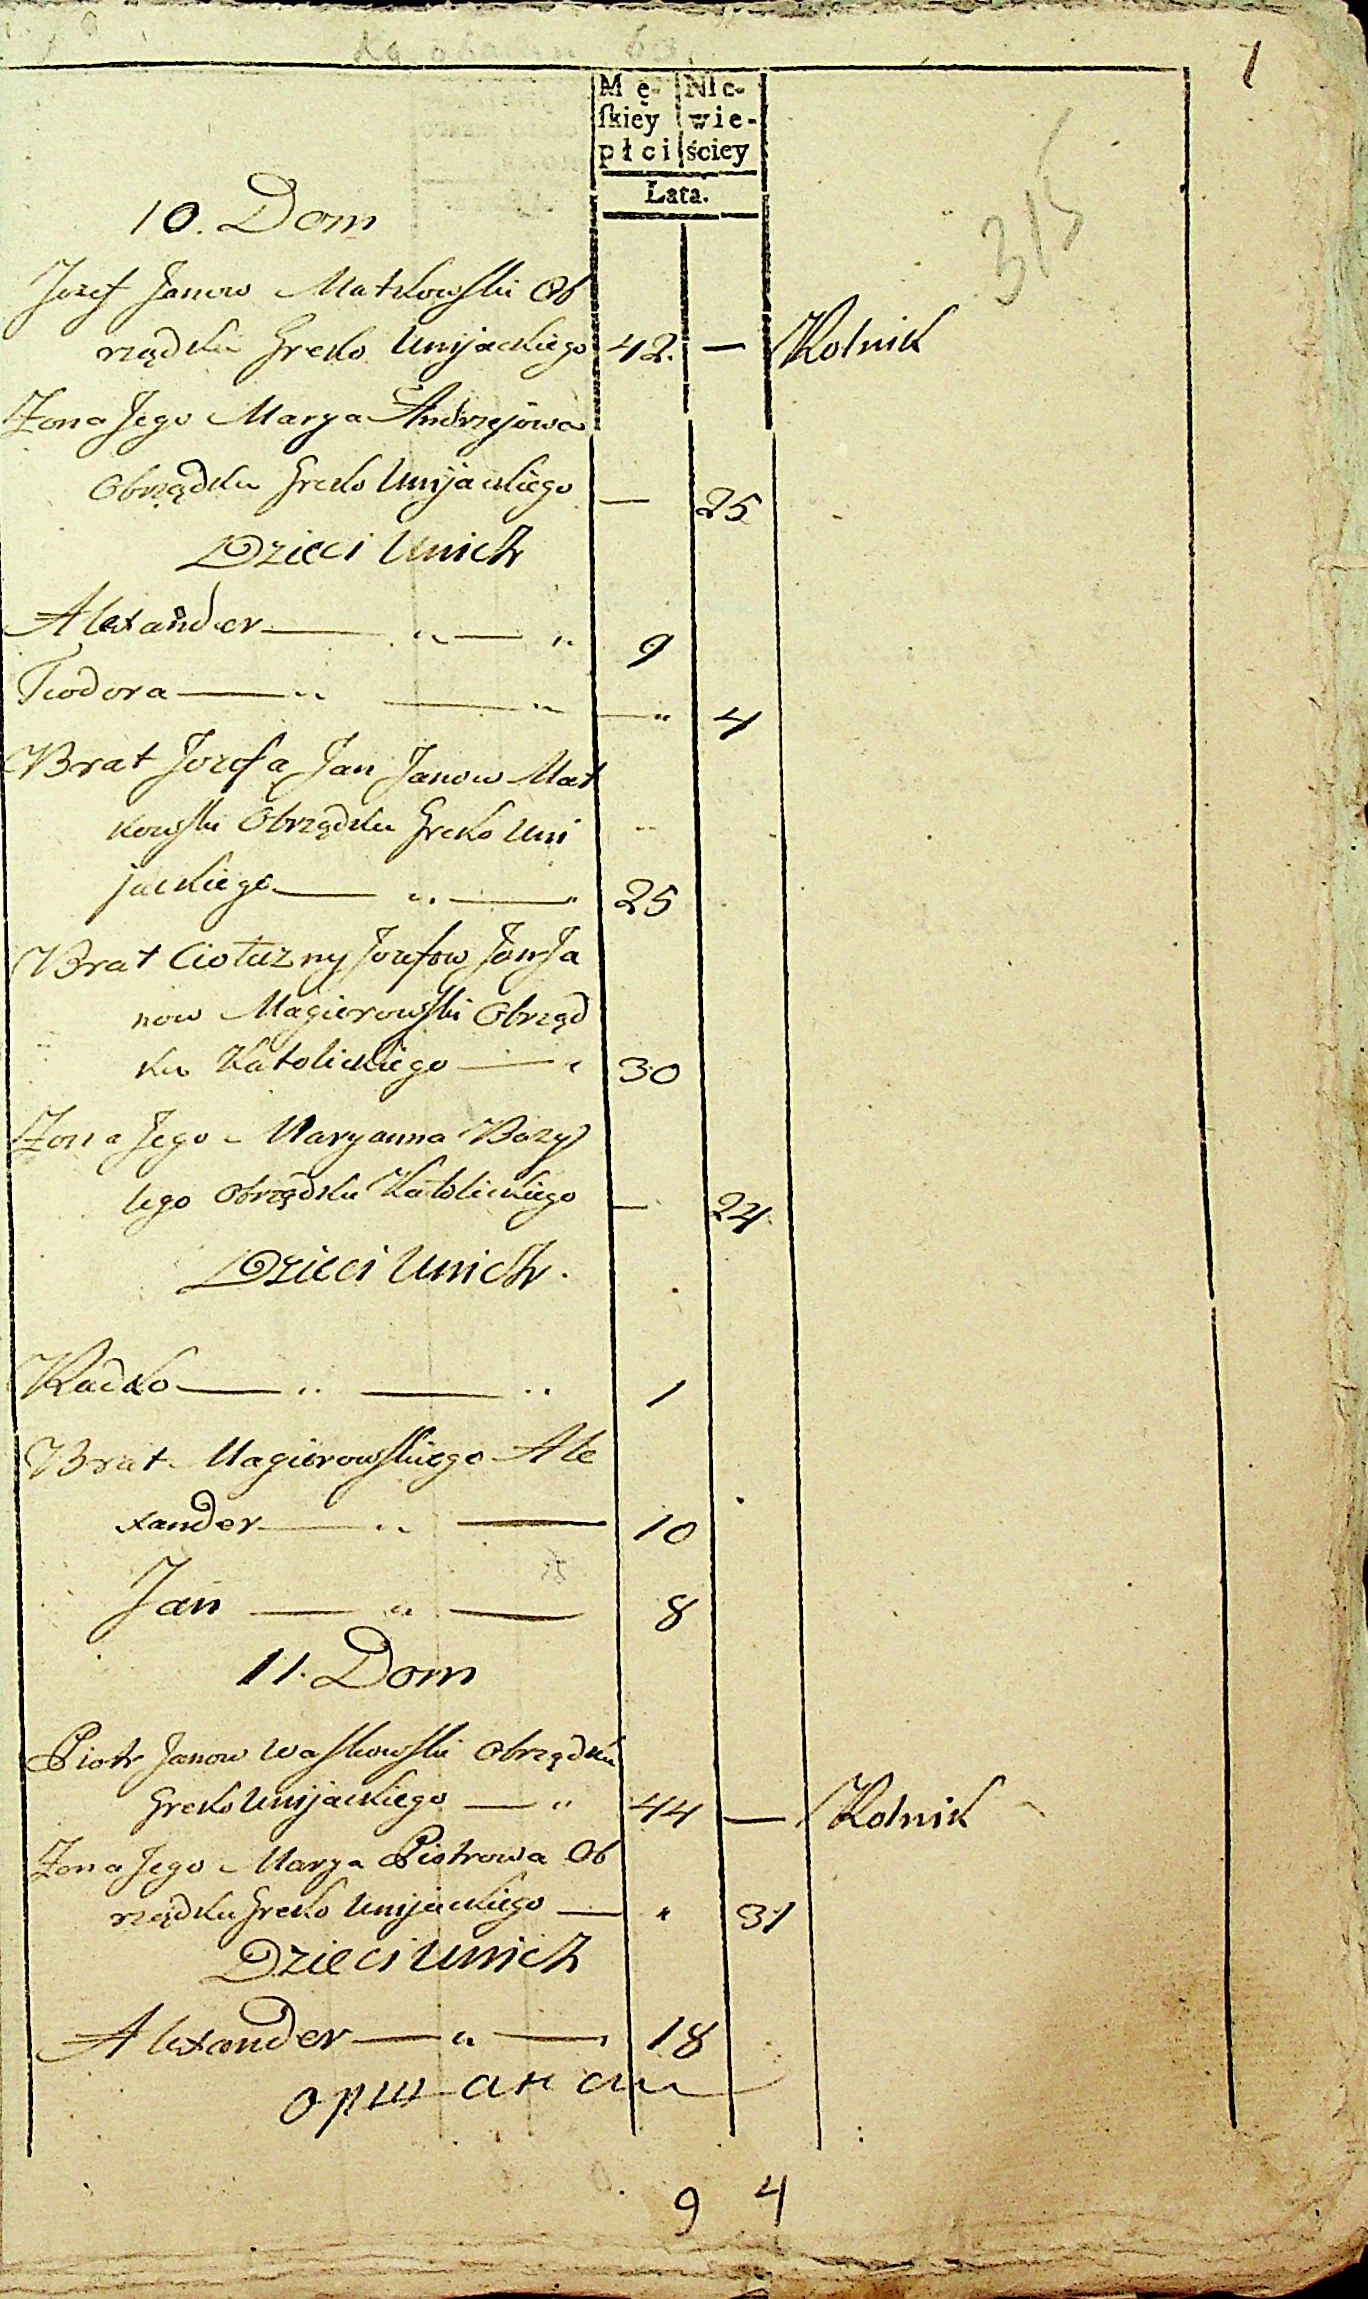 1
315
Mę- Nie-
ſkiey wie-
płci ściey
Lata.
10. Dom
Jozef Janow Matkowſki Ob
rządku Greko Unijackiego 42. — Rolnik
Zona Jego Marya Andrzejowa
Obrządku Greko Unijackiego — 25
Dzieci Unich
Alexander — „ — „ 9
Teodora — „ — „ — „ 4
Brat Jozefa Jan Janow Mat
kowſki Obrządku Greko Uni
jackiego — „ — „ 25
Brat Ciotuzny Jozefow Jan Ja
now Magierowſki Obrząd
ku Katolickiego — „ 30
Zona Jego Maryanna Bazy
lego Obrządku Katolickiego — 24
Dzieci Unich.
— „ — „ 1
Brat Magierowſkiego Ale
xander — „ — 10
Jan — „ — 8
11. Dom
Piotr Janow Waſkowſki Obrządku
Greko Unijackiego — „ 44 — Rolnik
Zona Jego Marya Piotrowa Ob
rządku Greko Unijackiego — „ 31
Dzieci Unich
Alexander — „ — „ 18
9 4